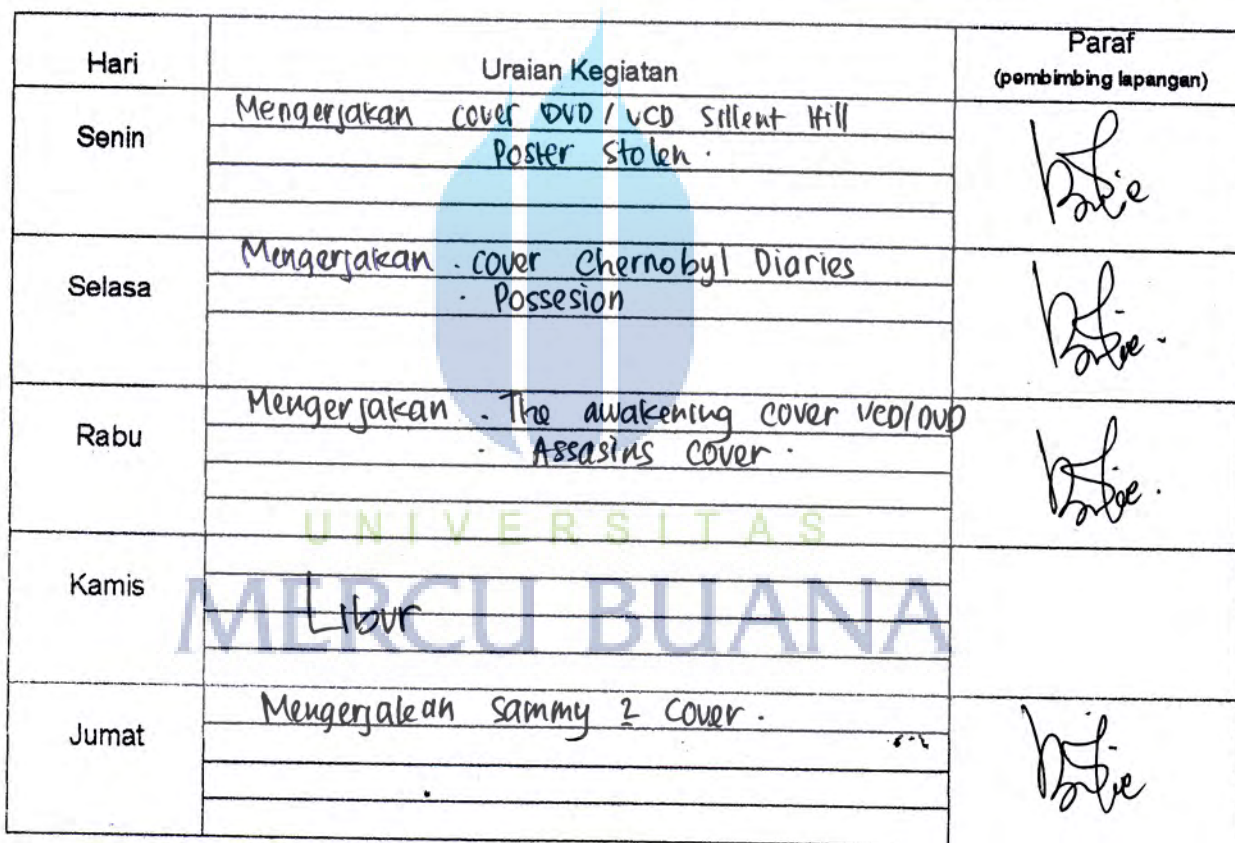 Hari
Uraian Kegiatan
Paraf
(pembimbing lapangan)
Senin
Mengerjakan cover DVD / VCD Sillent Hill
Poster Stolen .
Selasa
Mengerjakan . cover Chernobyl Diaries
. Possesion
Rabu
Mengerjakan . The awakening cover VCD/DVD
. Assasins cover .
UNIVERSITAS
MERCU BUANA
Kamis
Libur
Jumat
Mengerjakan Sammy 2 Cover .